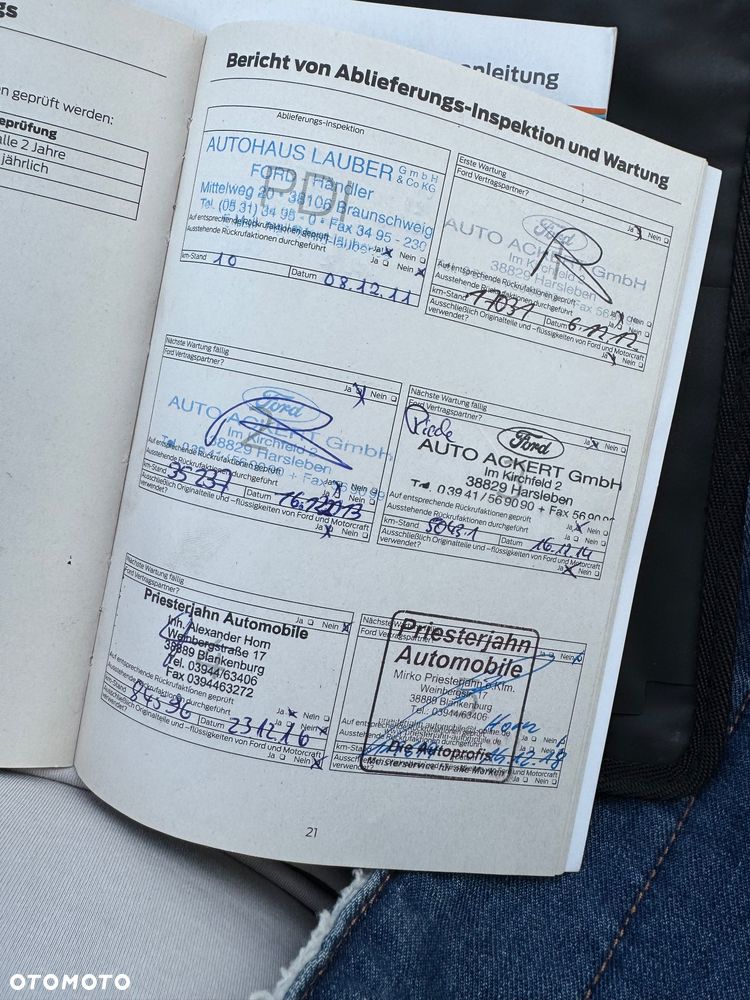 gs
en geprüft werden:
eprüfung
alle 2 Jahre
jährlich
anleitung
Bericht von Ablieferungs-Inspektion und Wartung
Ablieferungs-Inspektion
AUTOHAUS LAUBER GmbH & Co KG
FORD - Händler
PDI
Mittelweg 20 · 38106 Braunschweig
Tel. (05 31) 34 95 - 0 + Fax 34 95 - 230
Auf entsprechende Rückrufaktionen geprüft
Ja Nein
Ausstehende Rückrufaktionen durchgeführt
Ja Nein
km-Stand 10 Datum 08.12.11
Erste Wartung
Ford Vertragspartner?
Ja Nein
Ford
AUTO ACKERT GmbH
Im Kirchfeld 2
38829 Harsleben
Auf entsprechende Rückrufaktionen geprüft
Ausstehende Rückrufaktionen durchgeführt
Ja Nein
km-Stand 17031 Datum 6.12.12
Ausschließlich Originalteile und -flüssigkeiten von Ford und Motorcraft
verwendet? Ja Nein
Nächste Wartung fällig
Ford Vertragspartner?
Ja Nein
Ford
AUTO ACKERT GmbH
Im Kirchfeld 2
38829 Harsleben
Auf entsprechende Rückrufaktionen geprüft
Tel. 039 41 / 56 90 90 + Fax 56 90 99
Ausstehende Rückrufaktionen durchgeführt
km-Stand 35237 Datum 16.12.2013
Ausschließlich Originalteile und -flüssigkeiten von Ford und Motorcraft
verwendet? Ja Nein
Nächste Wartung fällig
Ford Vertragspartner?
Ja Nein
Ford
AUTO ACKERT GmbH
Im Kirchfeld 2
38829 Harsleben
Tel. 039 41 / 56 90 90 + Fax 56 90
Auf entsprechende Rückrufaktionen geprüft
Ja Nein
Ausstehende Rückrufaktionen durchgeführt
Ja Nein
km-Stand Datum 16.12.14
Ausschließlich Originalteile und -flüssigkeiten von Ford und Motorcraft
verwendet? Ja Nein
Nächste Wartung fällig
Ford Vertragspartner?
Ja Nein
Priesterjahn Automobile
Inh. Alexander Horn
Weinbergstraße 17
38889 Blankenburg
Tel. 03944/63406
Fax 0394463272
Auf entsprechende Rückrufaktionen geprüft
Ja Nein
Ausstehende Rückrufaktionen durchgeführt
Ja Nein
km-Stand 84596 Datum 23.12.16
Ausschließlich Originalteile und -flüssigkeiten von Ford und Motorcraft
verwendet? Ja Nein
Nächste Wartung fällig
Ford Vertragspartner?
Ja Nein
Priesterjahn
Automobile
Mirko Priesterjahn
Weinbergstr. 17
38889 Blankenburg
Tel.: 03944/63406
Horn
Die Autoprofis
Meisterservice für alle Marken
km-Stand 12.18
verwendet? Ja Nein
21
OTOMOTO